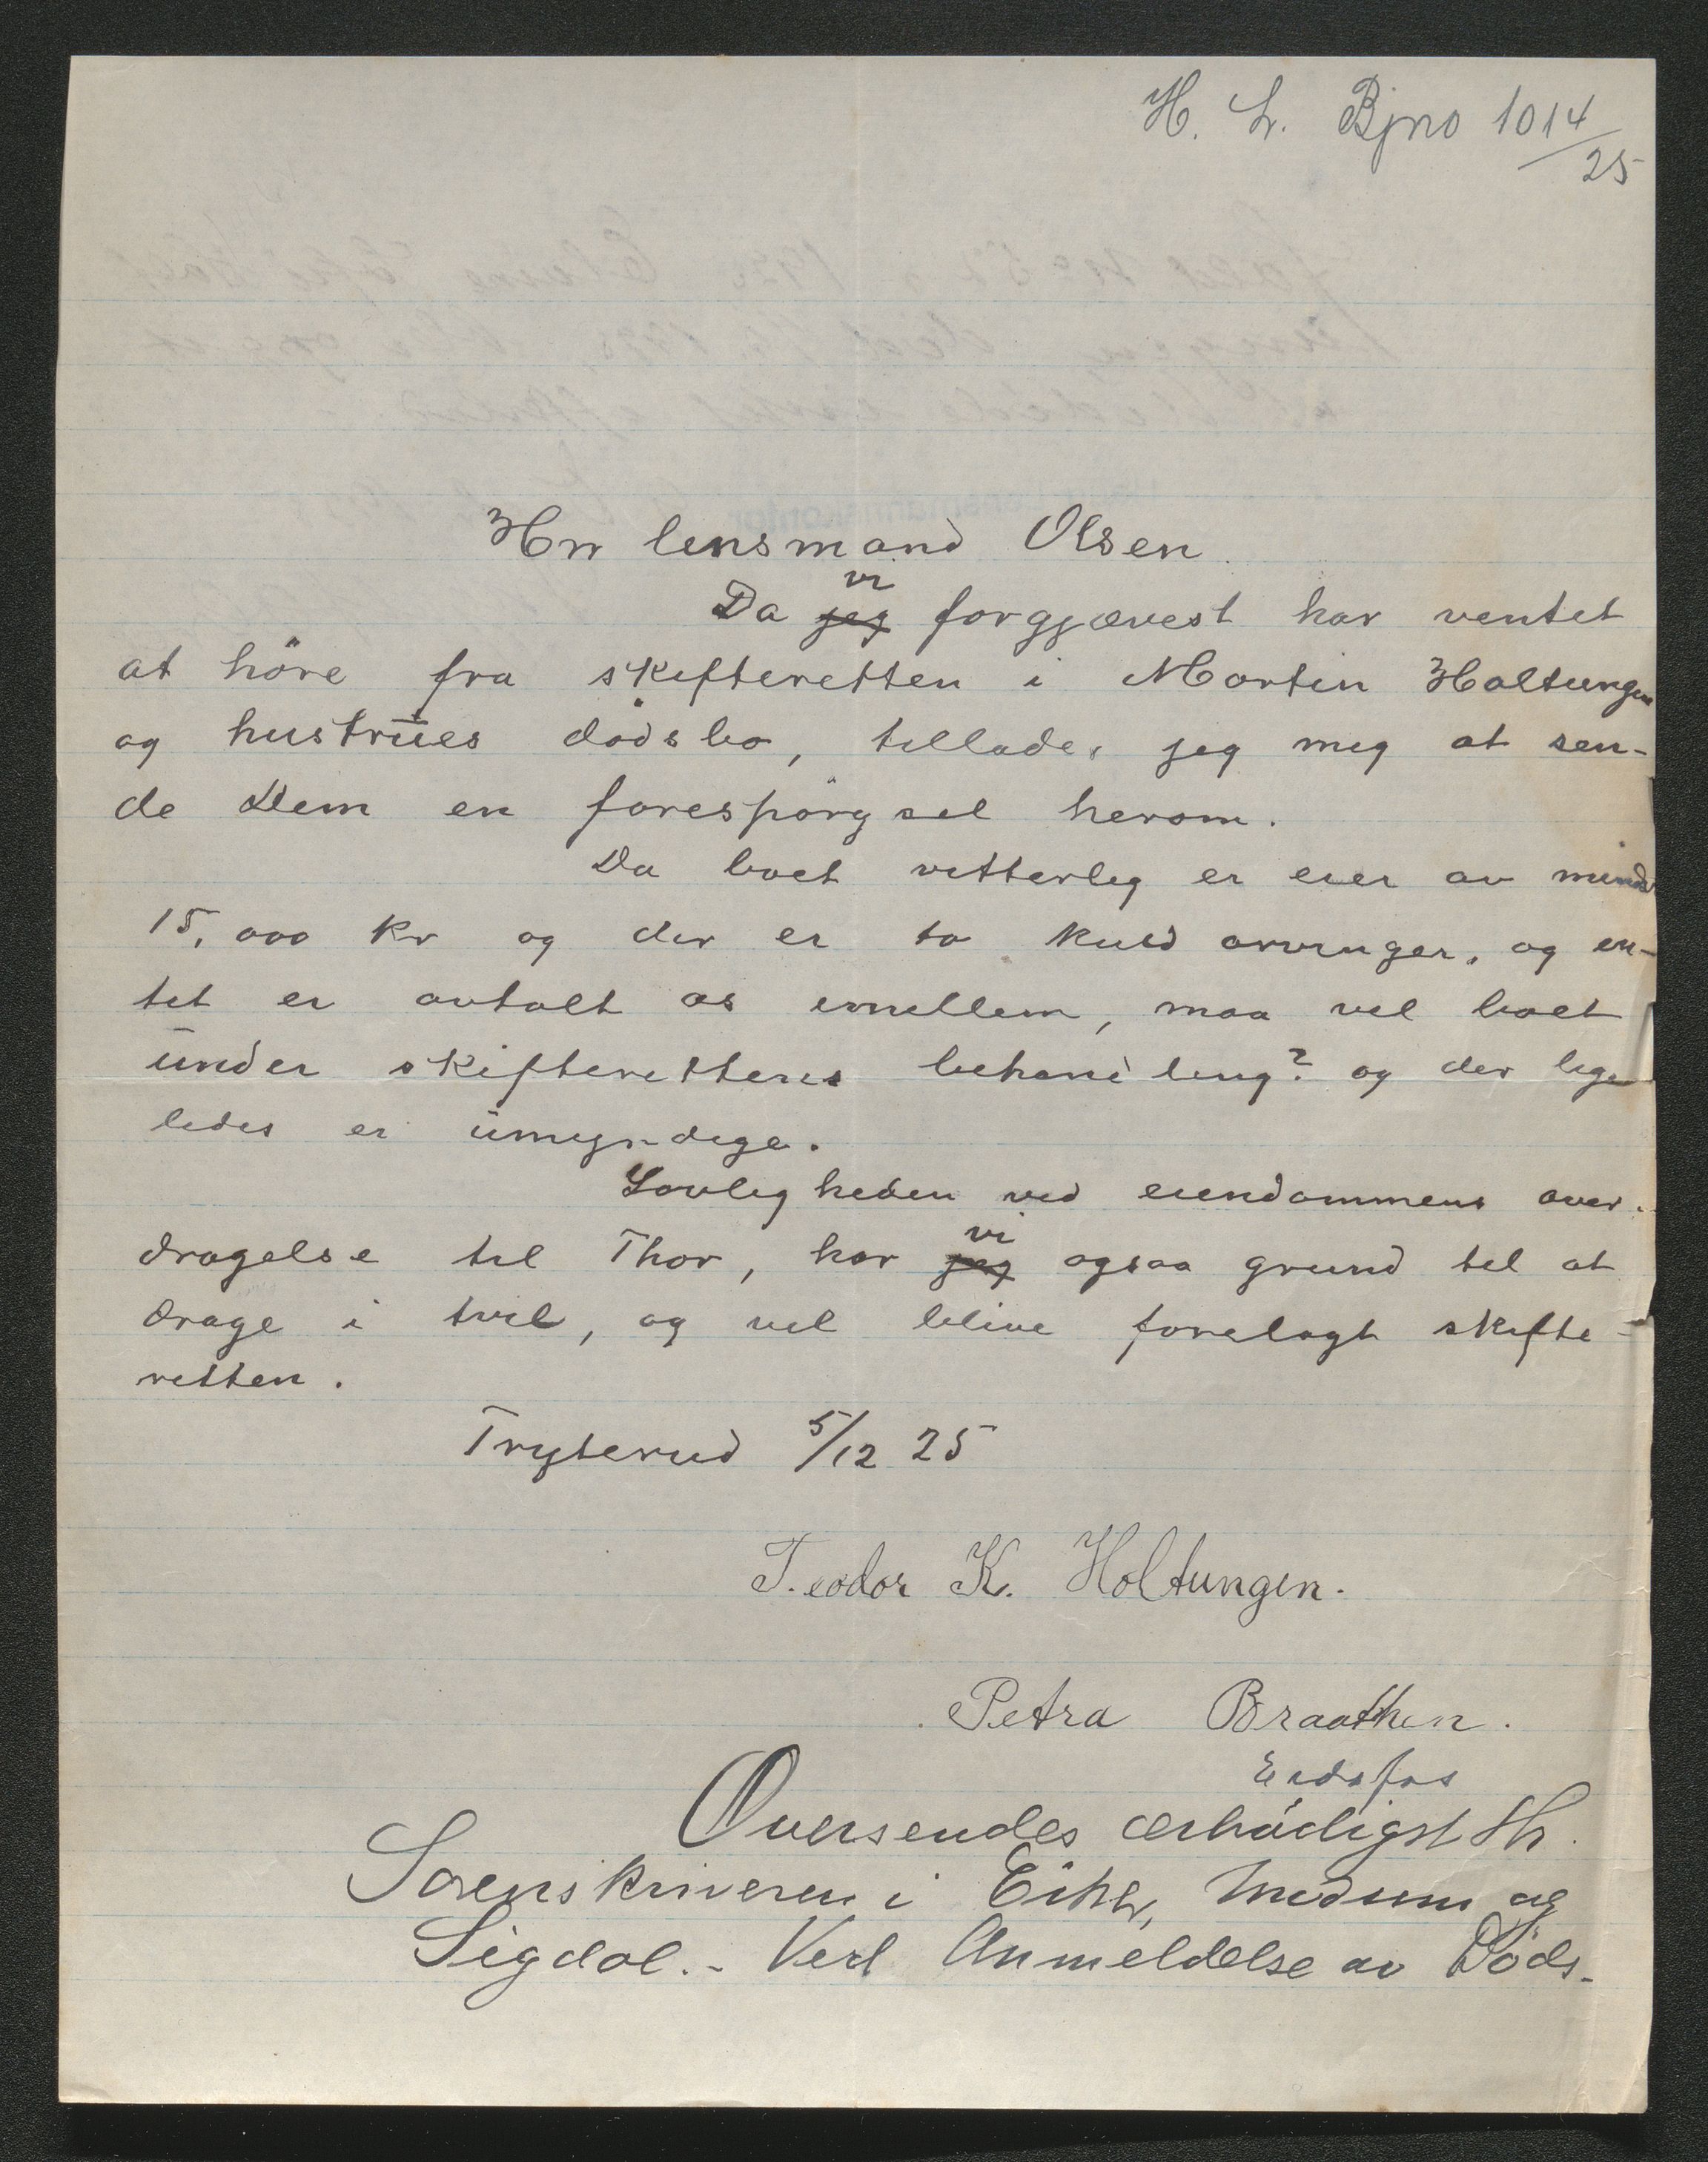 H. L. Bjno 1014/25
Hrr lensmand Olsen
vi
Da jeg forgjævest har ventet
at höre fra skifteretten i Martin Holtungen
og hustrues dödsbo, tillader jeg meg at sen-
de Dem en forespörgsel herom.
Da boet vitterlig er eier av minds
15,000 kr og der er to kuld arvinger, og en-
tet er avtalt os imellem, maa vel boet
under skifterettens behandling? og der lige
ledes er umyndige.
Lovligheden ved eiendommens over-
vi
dragelse til Thor, har jeg ogsaa grund til at
drage i tvil, og vil blive forelagt skifte-
retten.
Tryterud 5/12 25
Teodor K. Holtungen.
Petra Braathen.
Eidsfos
Oversendes ærbödigst Hr.
Sorenskriveren i Eiker, Modum og
Sigdal. - Ved Anmeldelse av Döds-